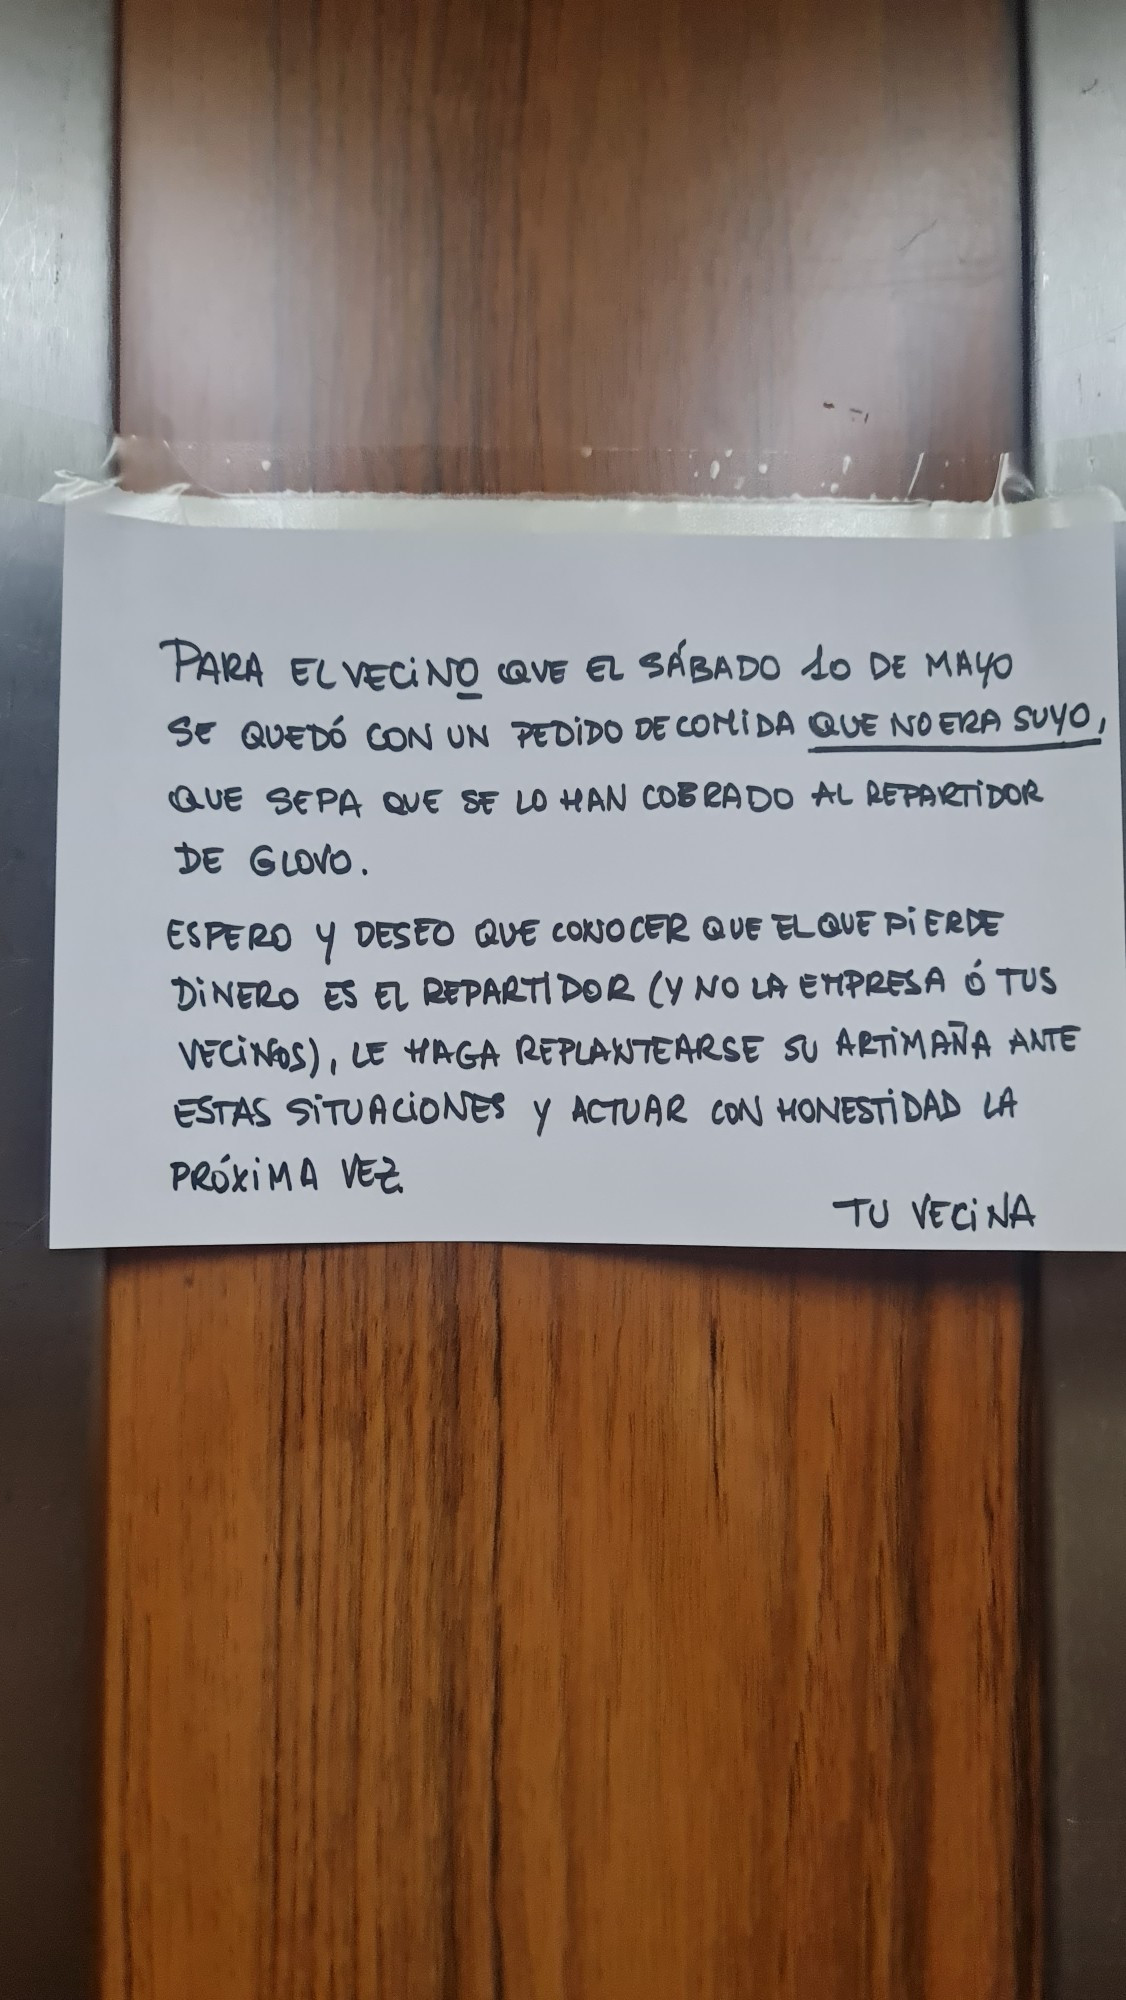 PARA EL VECINO QUE EL SÁBADO 10 DE MAYO
SE QUEDÓ CON UN PEDIDO DE COMIDA QUE NO ERA SUYO,
QUE SEPA QUE SE LO HAN COBRADO AL REPARTIDOR
DE GLOVO.
ESPERO Y DESEO QUE CONOCER QUE EL QUE PIERDE
DINERO ES EL REPARTIDOR (Y NO LA EMPRESA Ó TUS
VECINOS), LE HAGA REPLANTEARSE SU ARTIMAÑA ANTE
ESTAS SITUACIONES Y ACTUAR CON HONESTIDAD LA
PRÓXIMA VEZ.
TU VECINA